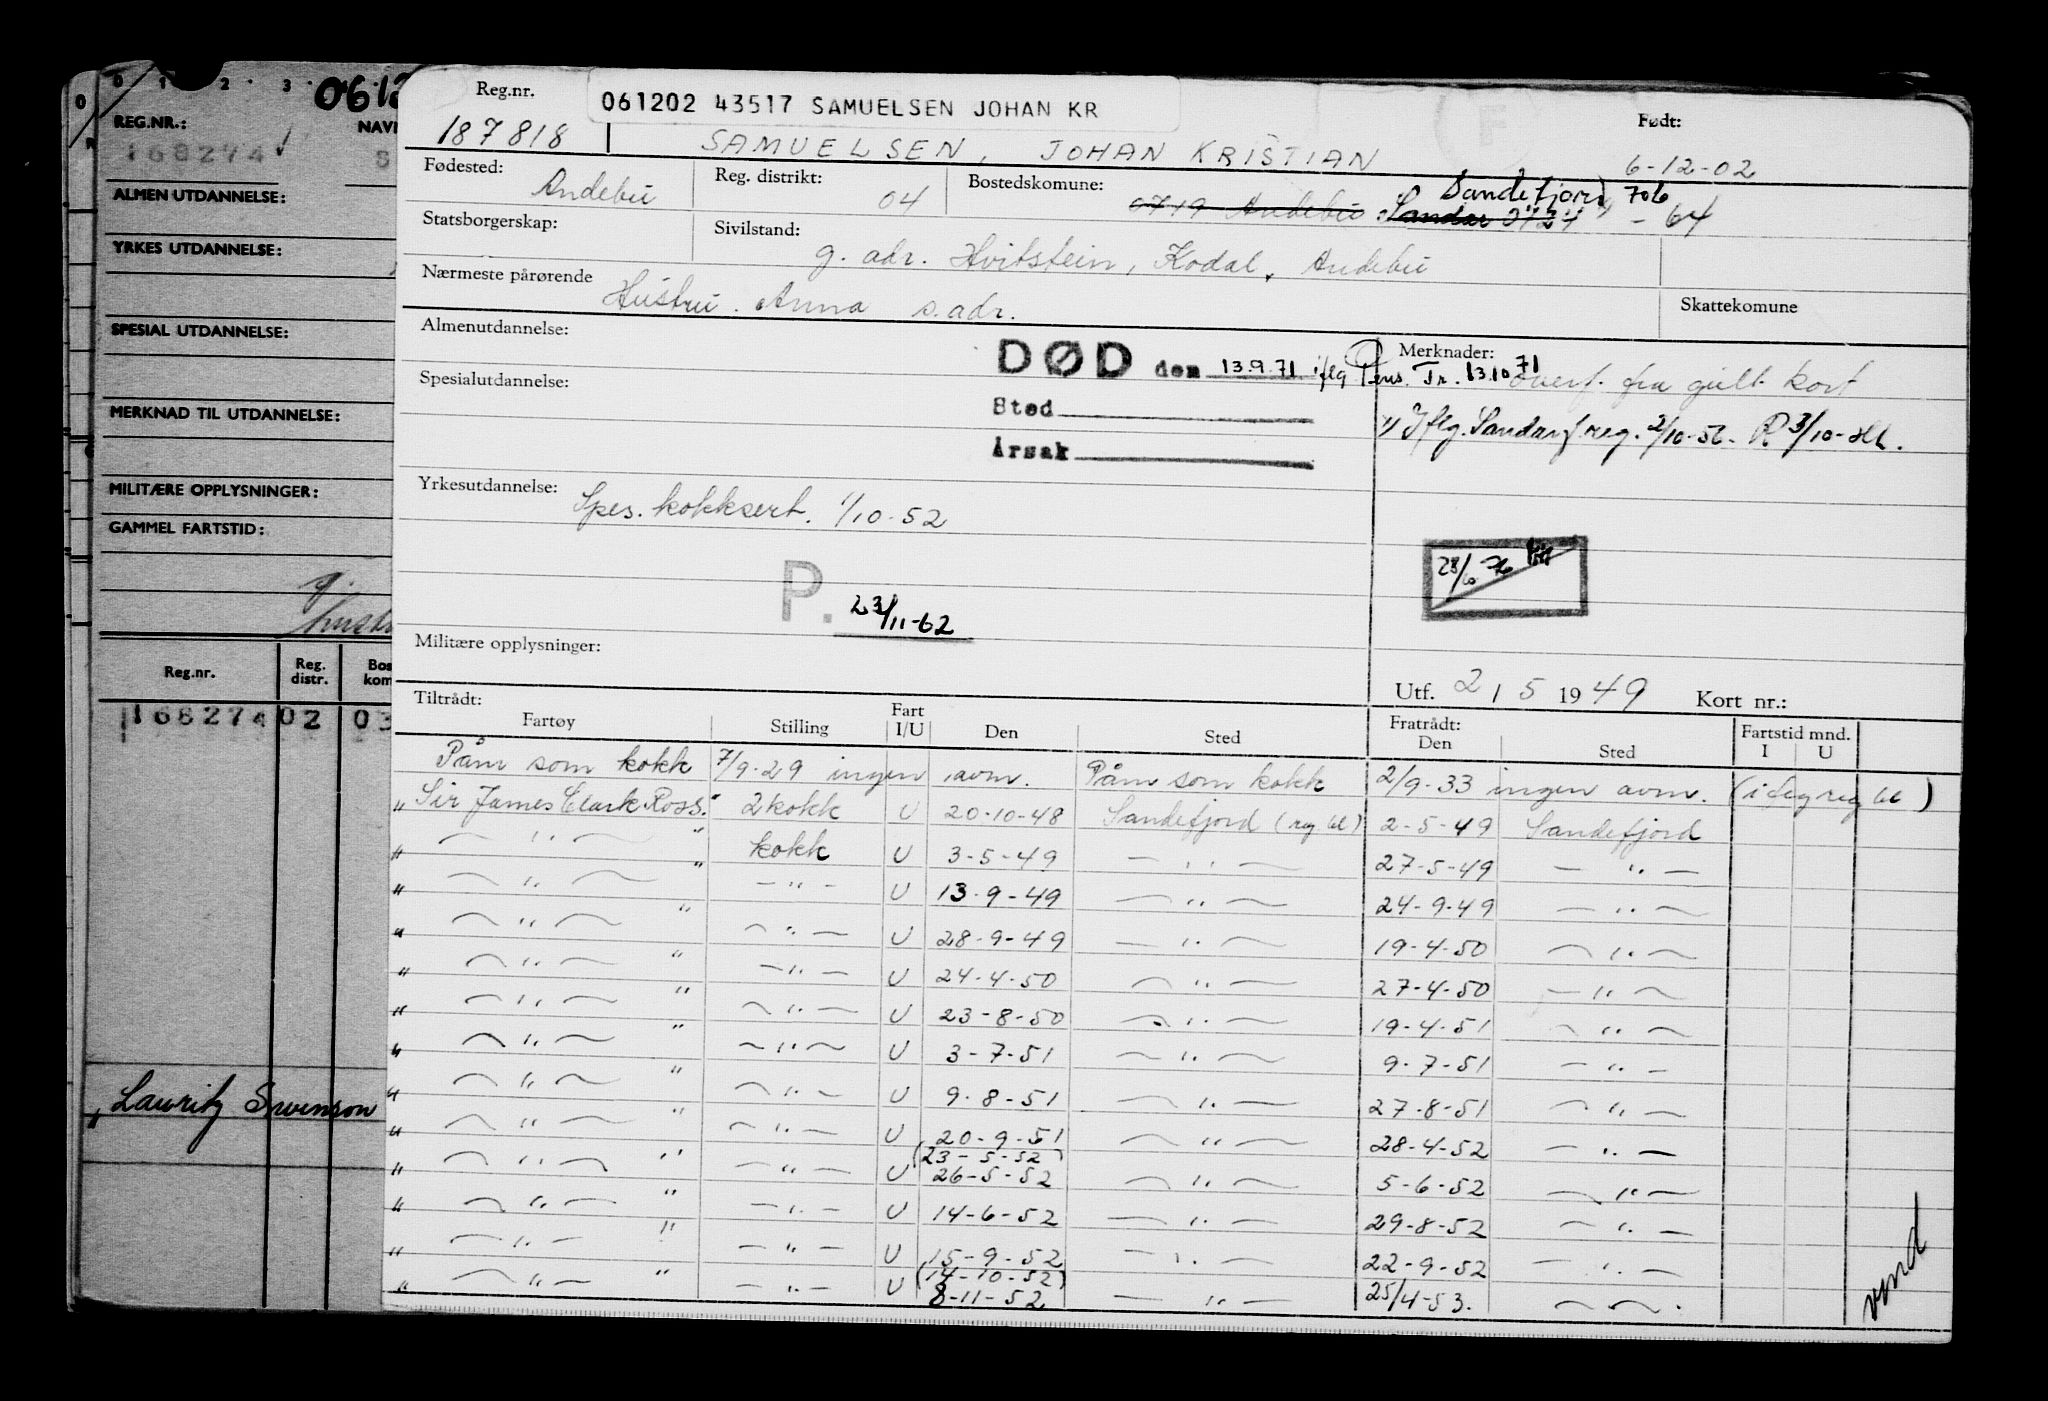 0 1 2 3
0612
REG.NR.: NAVN
168274 S
ALMEN UTDANNELSE:
YRKES UTDANNELSE:
SPESIAL UTDANNELSE:
MERKNAD TIL UTDANNELSE:
MILITÆRE OPPLYSNINGER:
GAMMEL FARTSTID:
g.
Reg.nr. Reg. distr. Bos kom
168274 02 03
" Lauritz Swenson
Reg.nr. 061202 43517 SAMUELSEN JOHAN KR Født:
187818 SAMUELSEN, JOHAN KRISTIAN 6-12-02
Fødested: Andebu Reg. distrikt: 04 Bostedskommune: 0719 Andebu Sandar 0724 Sandefjord 706 - 64
Statsborgerskap: Sivilstand: g. adr. Hvitstein, Kodal, Andebu
Nærmeste pårørende Hustru. Anna s. adr. Skattekomune
Almenutdannelse:
DØD den 13.9.71 iflg Pens. Tr. 13.10 71 Merknader: overf. fra gult kort
Spesialutdannelse:
Sted
Årsak
1) Iflg. Sandar f reg. 2/10-56. R 3/10-
Yrkesutdannelse: Spes. kokksert. 1/10-52
28/6 76
P. 23/11-62
Militære opplysninger:
Utf. 2 / 5 1949 Kort nr.:
Tiltrådt: Fratrådt: Fartstid mnd.
Fartøy Stilling Fart I/U Den Sted Den Sted I U
Påm som kokk 7/9-29 ingen avm. Påm som kokk 2/9-33 ingen avm. (i flg reg bl)
"Sir James Clark Ross." 2kokk U 20-10-48 Sandefjord (reg bl) 2-5-49 Sandefjord
" — " — " kokk U 3-5-49 — " — 27-5-49 — " —
" — " — " — " — U 13-9-49 — " — 24-9-49 — " —
" — " — " — " — U 28-9-49 — " — 19-4-50 — " —
" — " — " — " — U 24-4-50 — " — 27-4-50 — " —
" — " — " — " — U 23-8-50 — " — 19-4-51 — " —
" — " — " — " — U 3-7-51 — " — 9-7-51 — " —
" — " — " — " — U 9-8-51 — " — 27-8-51 — " —
" — " — " — " — U 20-9-51 — " — 28-4-52 — " —
" — " — " — " — U (23-5-52) 26-5-52 — " — 5-6-52 — " —
" — " — " — " — U 14-6-52 — " — 29-8-52 — " —
" — " — " — " — U 15-9-52 — " — 22-9-52 — " —
" — " — " — " — U (14-10-52) 8-11-52 — " — 25/4-53. — " —
vend